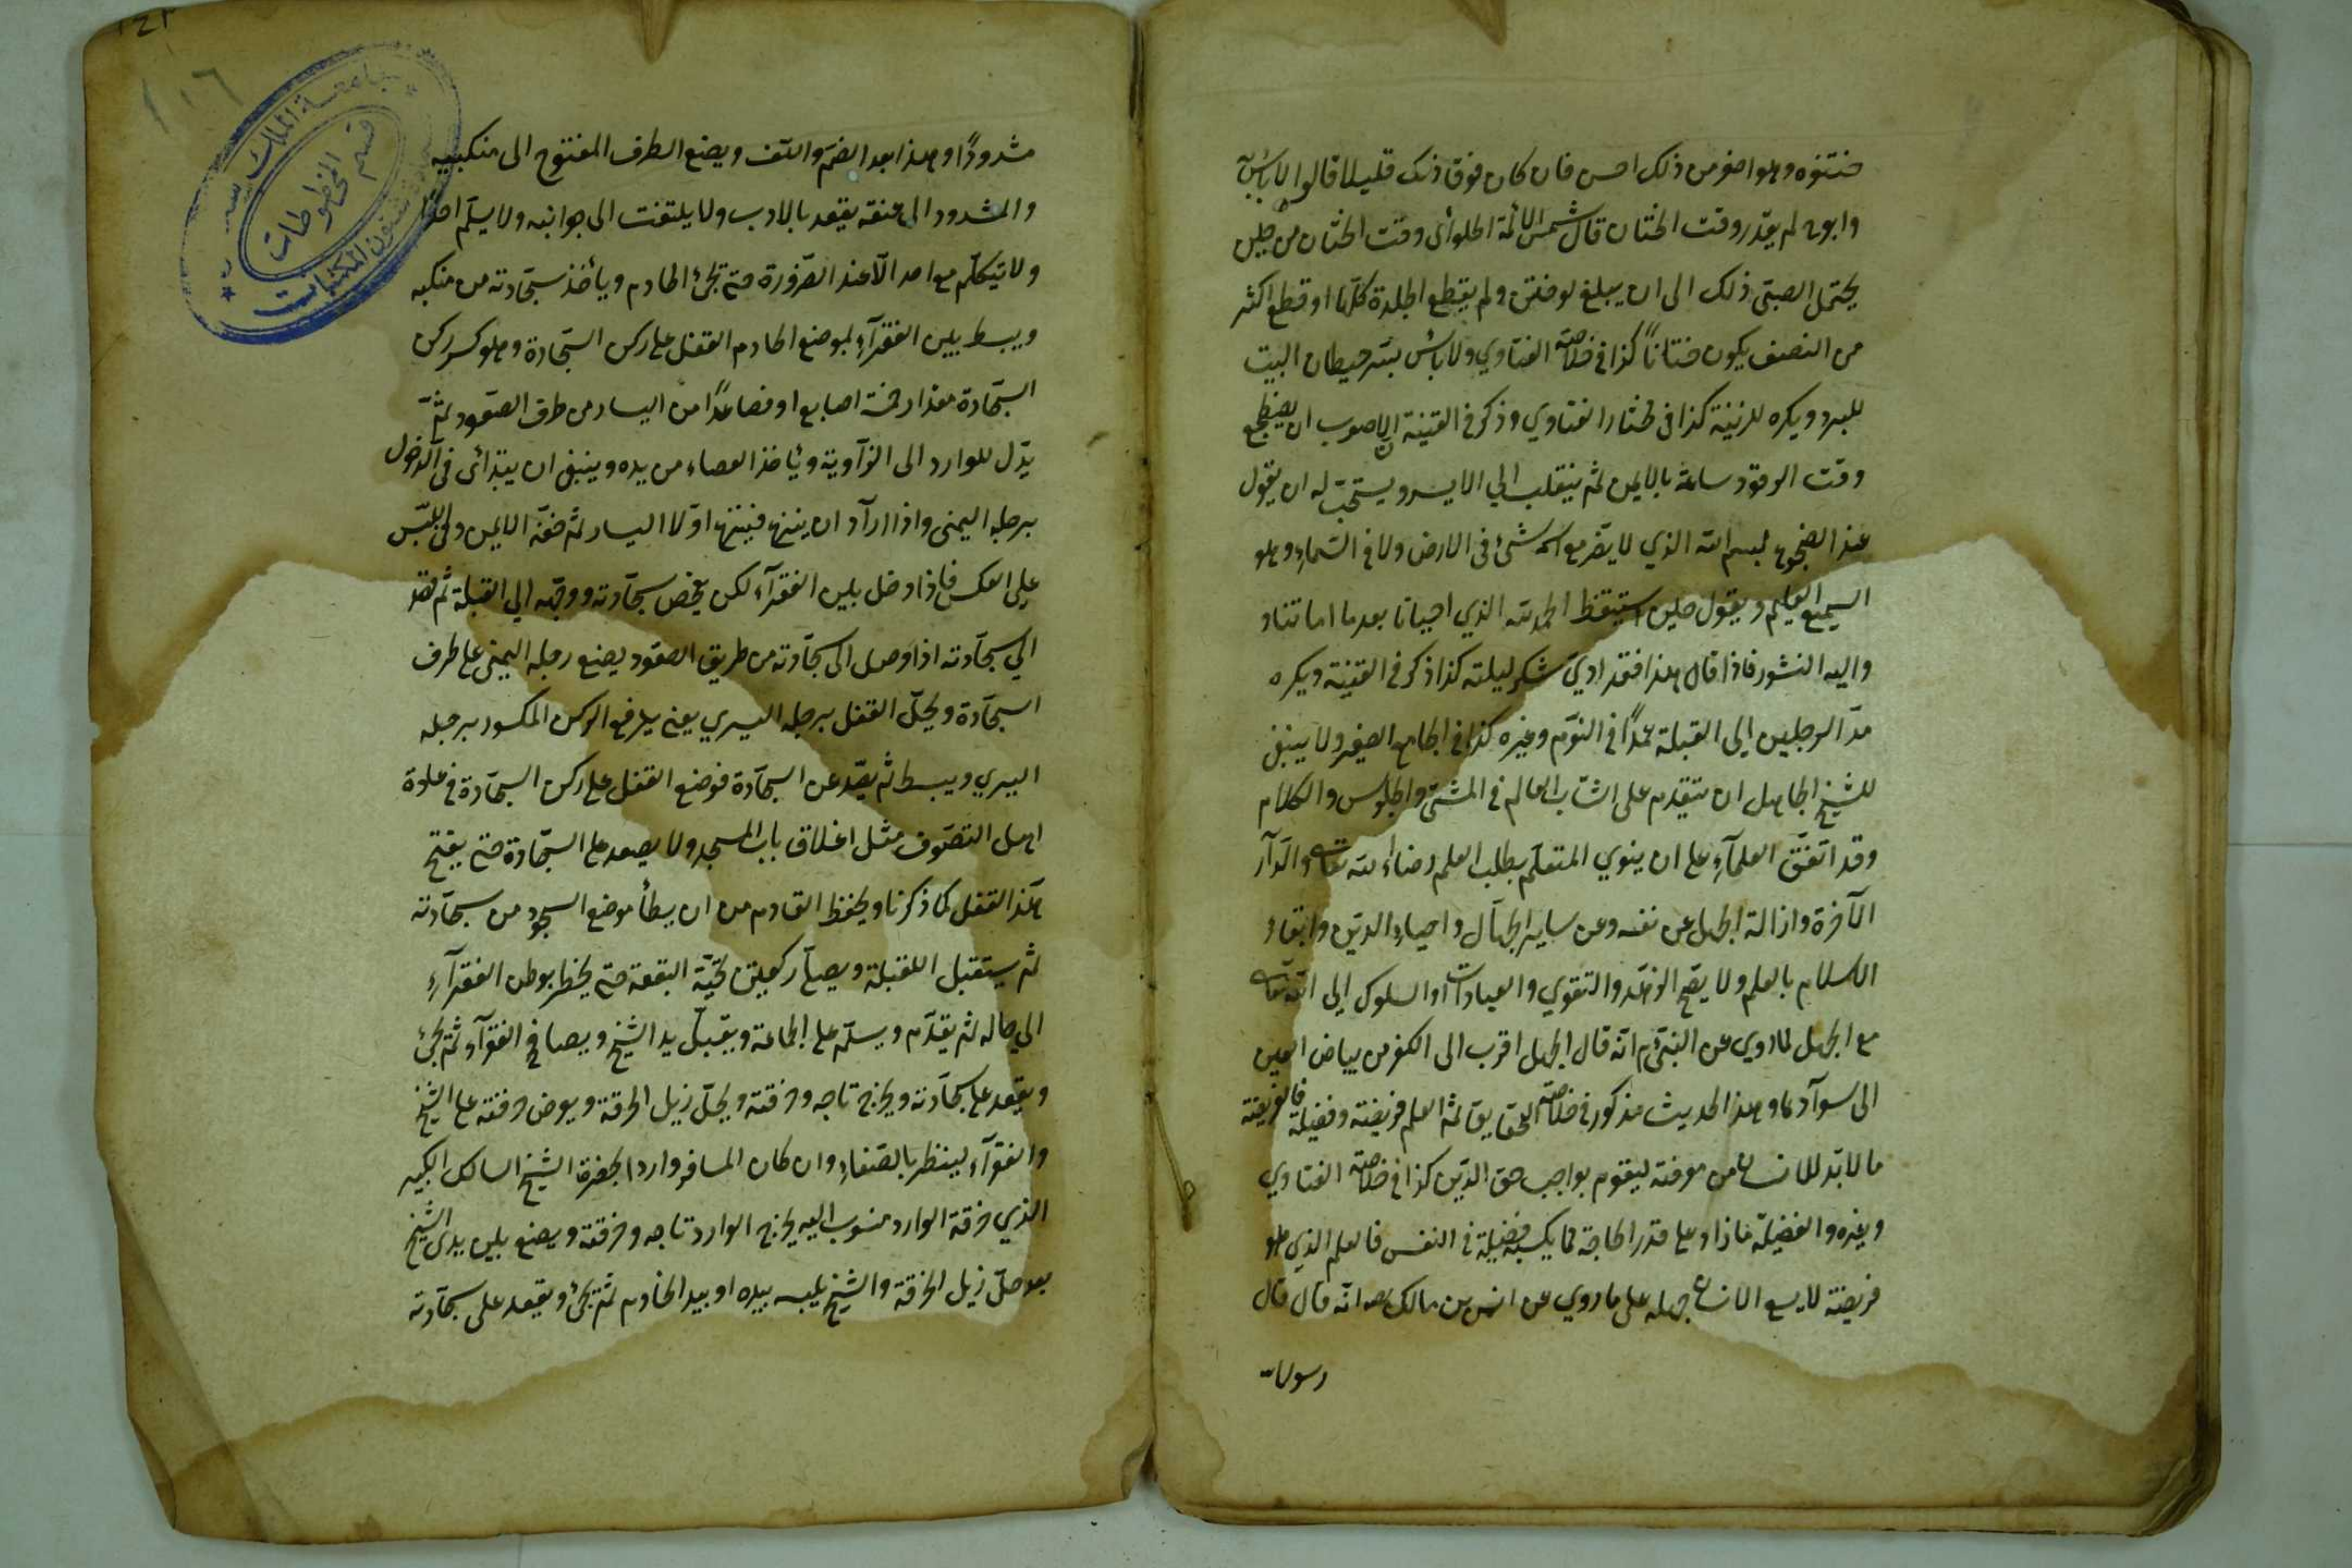 ختنوه وهو اصغر من ذلك احسن فان كان فوق ذلك قليلا قالوا لا بأس
وابو ح لم يقدّر وقت الختان قال شمس الائمة الحلوائى وقت الختان من حين
يحتمل الصبىّ ذلك الى ان يبلغ لو ختن ولم يقطع الجلدة كلّها او قطع اكثر
من النصف يكون ختانًا كذا فى خلاصة الفتاوي ولا بأس بستر حيطان البيت
للبرد ويكره للزينة كذا فى الفتاوي وذكر فى القنية الاصوب ان يضطجع
وقت الرقود ساعة بالايمن ثم ينقلب الي الايسر ويستحبّ له ان يقول
عند الضجوع بسم الله الذي لا يضرّ مع اسمه شئ فى الارض ولا فى السّماء وهو
السميع العليم ويقول حين استيقظ الحمد لله الذي احيانا بعد ما اماتنا و
واليه النشور فاذا قال هذا فقد ادي شكر ليلته كذا ذكر فى القنية ويكره
مدّ الرجلين الي القبلة عمدًا فى النوّم وغيره كذا فى الجامع الصغير ولا ينبغى
للشيخ الجاهل ان يتقدم على الشابّ العالم فى المشى والجلوس والكلام
وقد اتّفق العلمآء على ان ينوي المتعلّم بطلب العلم رضاء الله تعالى والدّار
الآخرة وازالة الجهل عن نفسه وعن ساير الجهّال واحياء الدّين وابقاء
الاسلام بالعلم ولا يصّح الزهّد والتقوي والعبادات او السلوك الي الله تعالى
مع الجهل لما روي عن النبىّ م انّه قال الجهل اقرب الى الكفر من بياض العين
الى سوآدها وهذا الحديث مذكور فى خلاصة الحقايق ثم العلم فريضة وفضيلة فالفريضة
ما لا بدّ للانسان من معرفته ليقوم بواجب حق الدّين كذا فى خلاصة الفتاوي
وغيره والفضيلة ما زاد على قدر الحاجة مما يكسبه فضيلة فى النفس فالعلم الذي هو
فريضة لا يسع الانسان جهله على ما روي عن انس بن مالك رضه انّه قال قال
رسول الله
مشدودًا وهذا بعد الضمّ واللّف ويضع الطرف المفتوح الى منكبيه
والمشدود الى عنقه يقعد بالادب ولا يلتفت الى جوانبه ولا يسلّم احدًا
ولا يتكلّم مع احد الّا عند الضّرورة حتى يجئ الخادم ويأخذ سجّادته من منكبه
ويبسط بين الفقرآء بموضع الخادم القفل على ركن السّجادة وهو كسر ركن
السجّادة مقدار خمسة اصابع او فصاعدًا من اليسار من طرف الصعّود ثمّ
يدّل للوارد الى الزّاوية ويأخذ العصاء من يده وينبغى ان يبتدائ فى الدّخول
برجله اليمنى واذا ارآد ان ينزع فينزع اوّلا اليسار ثم خفّه الايمن وفى اللبس
على العكس فاذا دخل بين الفقرآء لكن يفحص سجّادته ووجهّه الي القبلة ثم يقعد
الي سجّادته اذا وصل الى سجّادته من طريق الصعّود يضع رجله اليمنى على طرف
السجّادة ويحلّ القفل برجله اليسري يعنى يرفع الركن المكسور برجله
اليسري ويبسط ثم يقعّد عن السجّادة فوضع القفل على ركن السجّادة فى عادة
اهل التصّوف مثل اغلاق باب المسجد ولا يصعد على السجّادة حتى يفتح
هذا القفل كما ذكرنا ويحفظ القادم من ان يطأ موضع السجود من سجّادته
ثم يستقبل القبلة ويصلّى ركعتين تحيّة البقعة حتى يخطر بوطن الفقرآء
الي حاله ثم يقدّم ويسلّم على الجماعة ويقبّل يد الشيخ ويصافح الفقرآء ثم يجئ
ويقعد على سجّادته ويخرج تاجه وخرقته ويحلّ ذيل الخرقة ويعرض خرقته على الشيخ
والفقرآء لينظر بالصّفاء وان كان المسافر واردا لحضرة الشيخ السالك الكبير
الذي خرقة الوارد منسوب اليه يخرج الوارد تاجه وخرقته ويضع بين يدى الشيخ
بعد حلّ ذيل الخرقة والشيخ يلبسه بيده او بيد الخادم ثم يجئ ويقعد على سجّادته
١٢٦
جامعة الملك سعود
قسم المخطوطات
شئون المكتبات